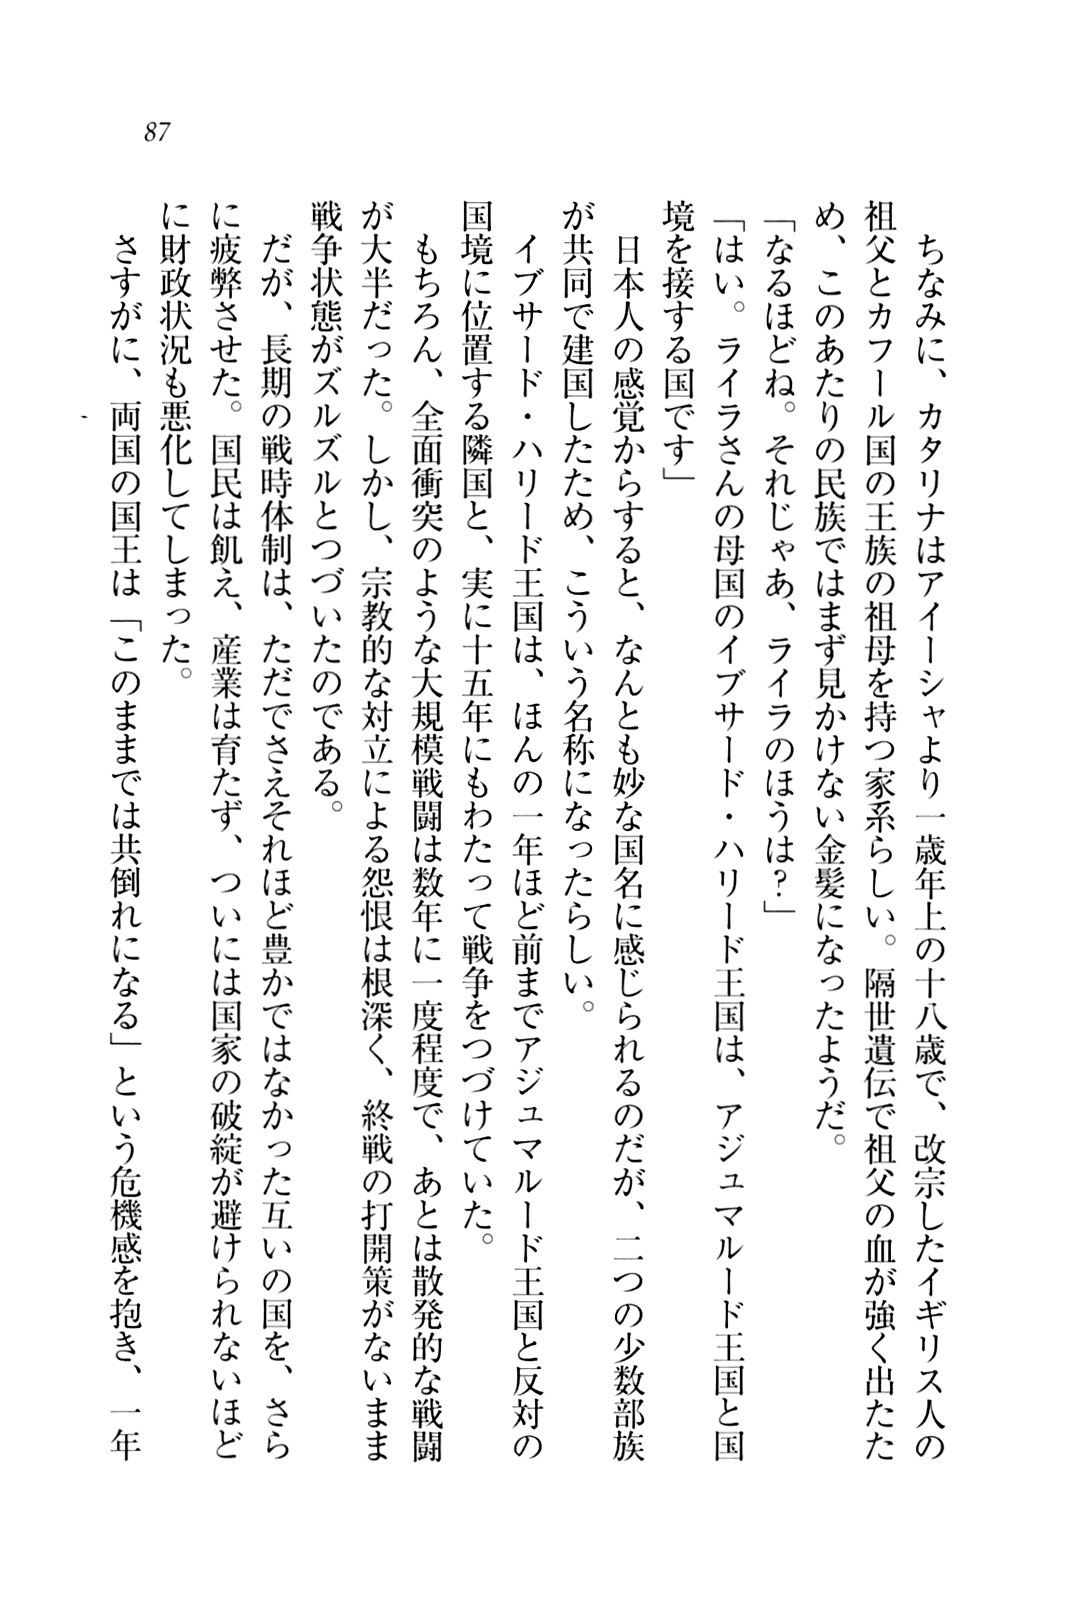 87
ちなみに、カタリナはアイーシャより一歳年上の十八歳で、改宗したイギリス人の
祖父とカフール国の王族の祖母を持つ家系らしい。隔世遺伝で祖父の血が強く出たた
め、このあたりの民族ではまず見かけない金髪になったようだ。
「なるほどね。それじゃあ、ライラのほうは?」
「はい。ライラさんの母国のイブサード・ハリード王国は、アジュマルード王国と国
境を接する国です」
日本人の感覚からすると、なんとも妙な国名に感じられるのだが、二つの少数部族
が共同で建国したため、こういう名称になったらしい。
イブサード・ハリード王国は、ほんの一年ほど前までアジュマルード王国と反対の
国境に位置する隣国と、実に十五年にもわたって戦争をつづけていた。
もちろん、全面衝突のような大規模戦闘は数年に一度程度で、あとは散発的な戦闘
が大半だった。しかし、宗教的な対立による怨恨は根深く、終戦の打開策がないまま
戦争状態がズルズルとつづいたのである。
だが、長期の戦時体制は、ただでさえそれほど豊かではなかった互いの国を、さら
に疲弊させた。国民は飢え、産業は育たず、ついには国家の破綻が避けられないほど
に財政状況も悪化してしまった。
さすがに、両国の国王は「このままでは共倒れになる」という危機感を抱き、一年